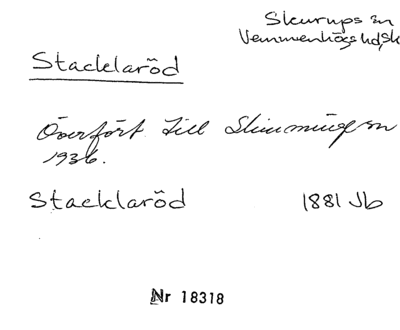 Skurups sn
Vemmenhögs hd, Sk
Stacklaröd
Överfört till Slimminge sn
1936.
Stacklaröd 1881 Jb
Nr 18318